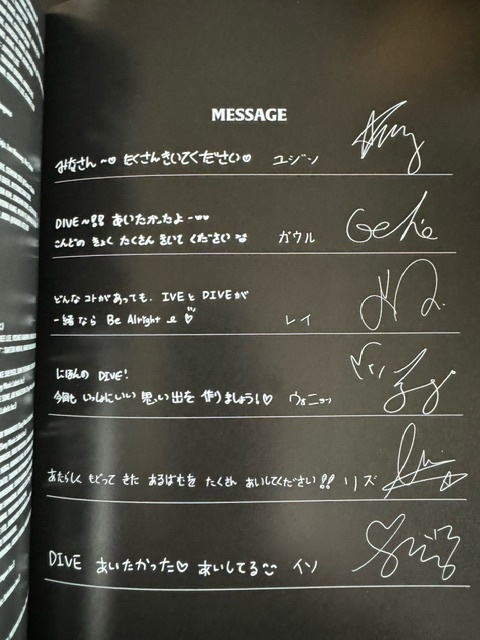 MESSAGE
みなさん~♡ たくさんきいてください♡ ユジン
DIVE~!! あいたかったよー♡♡
こんどの きょく たくさん きいて くださいな ガウル
どんなコトがあっても、IVEとDIVEが
一緒なら Be Alright ♡ レイ
にほんの DIVE!
今回も いっしょにいい 思い出を 作りましょう!♡ ウォニョン
あたらしく もどって きた あるばむを たくさん あいしてください!! リズ
DIVE あいたかった♡ あいしてる イソ